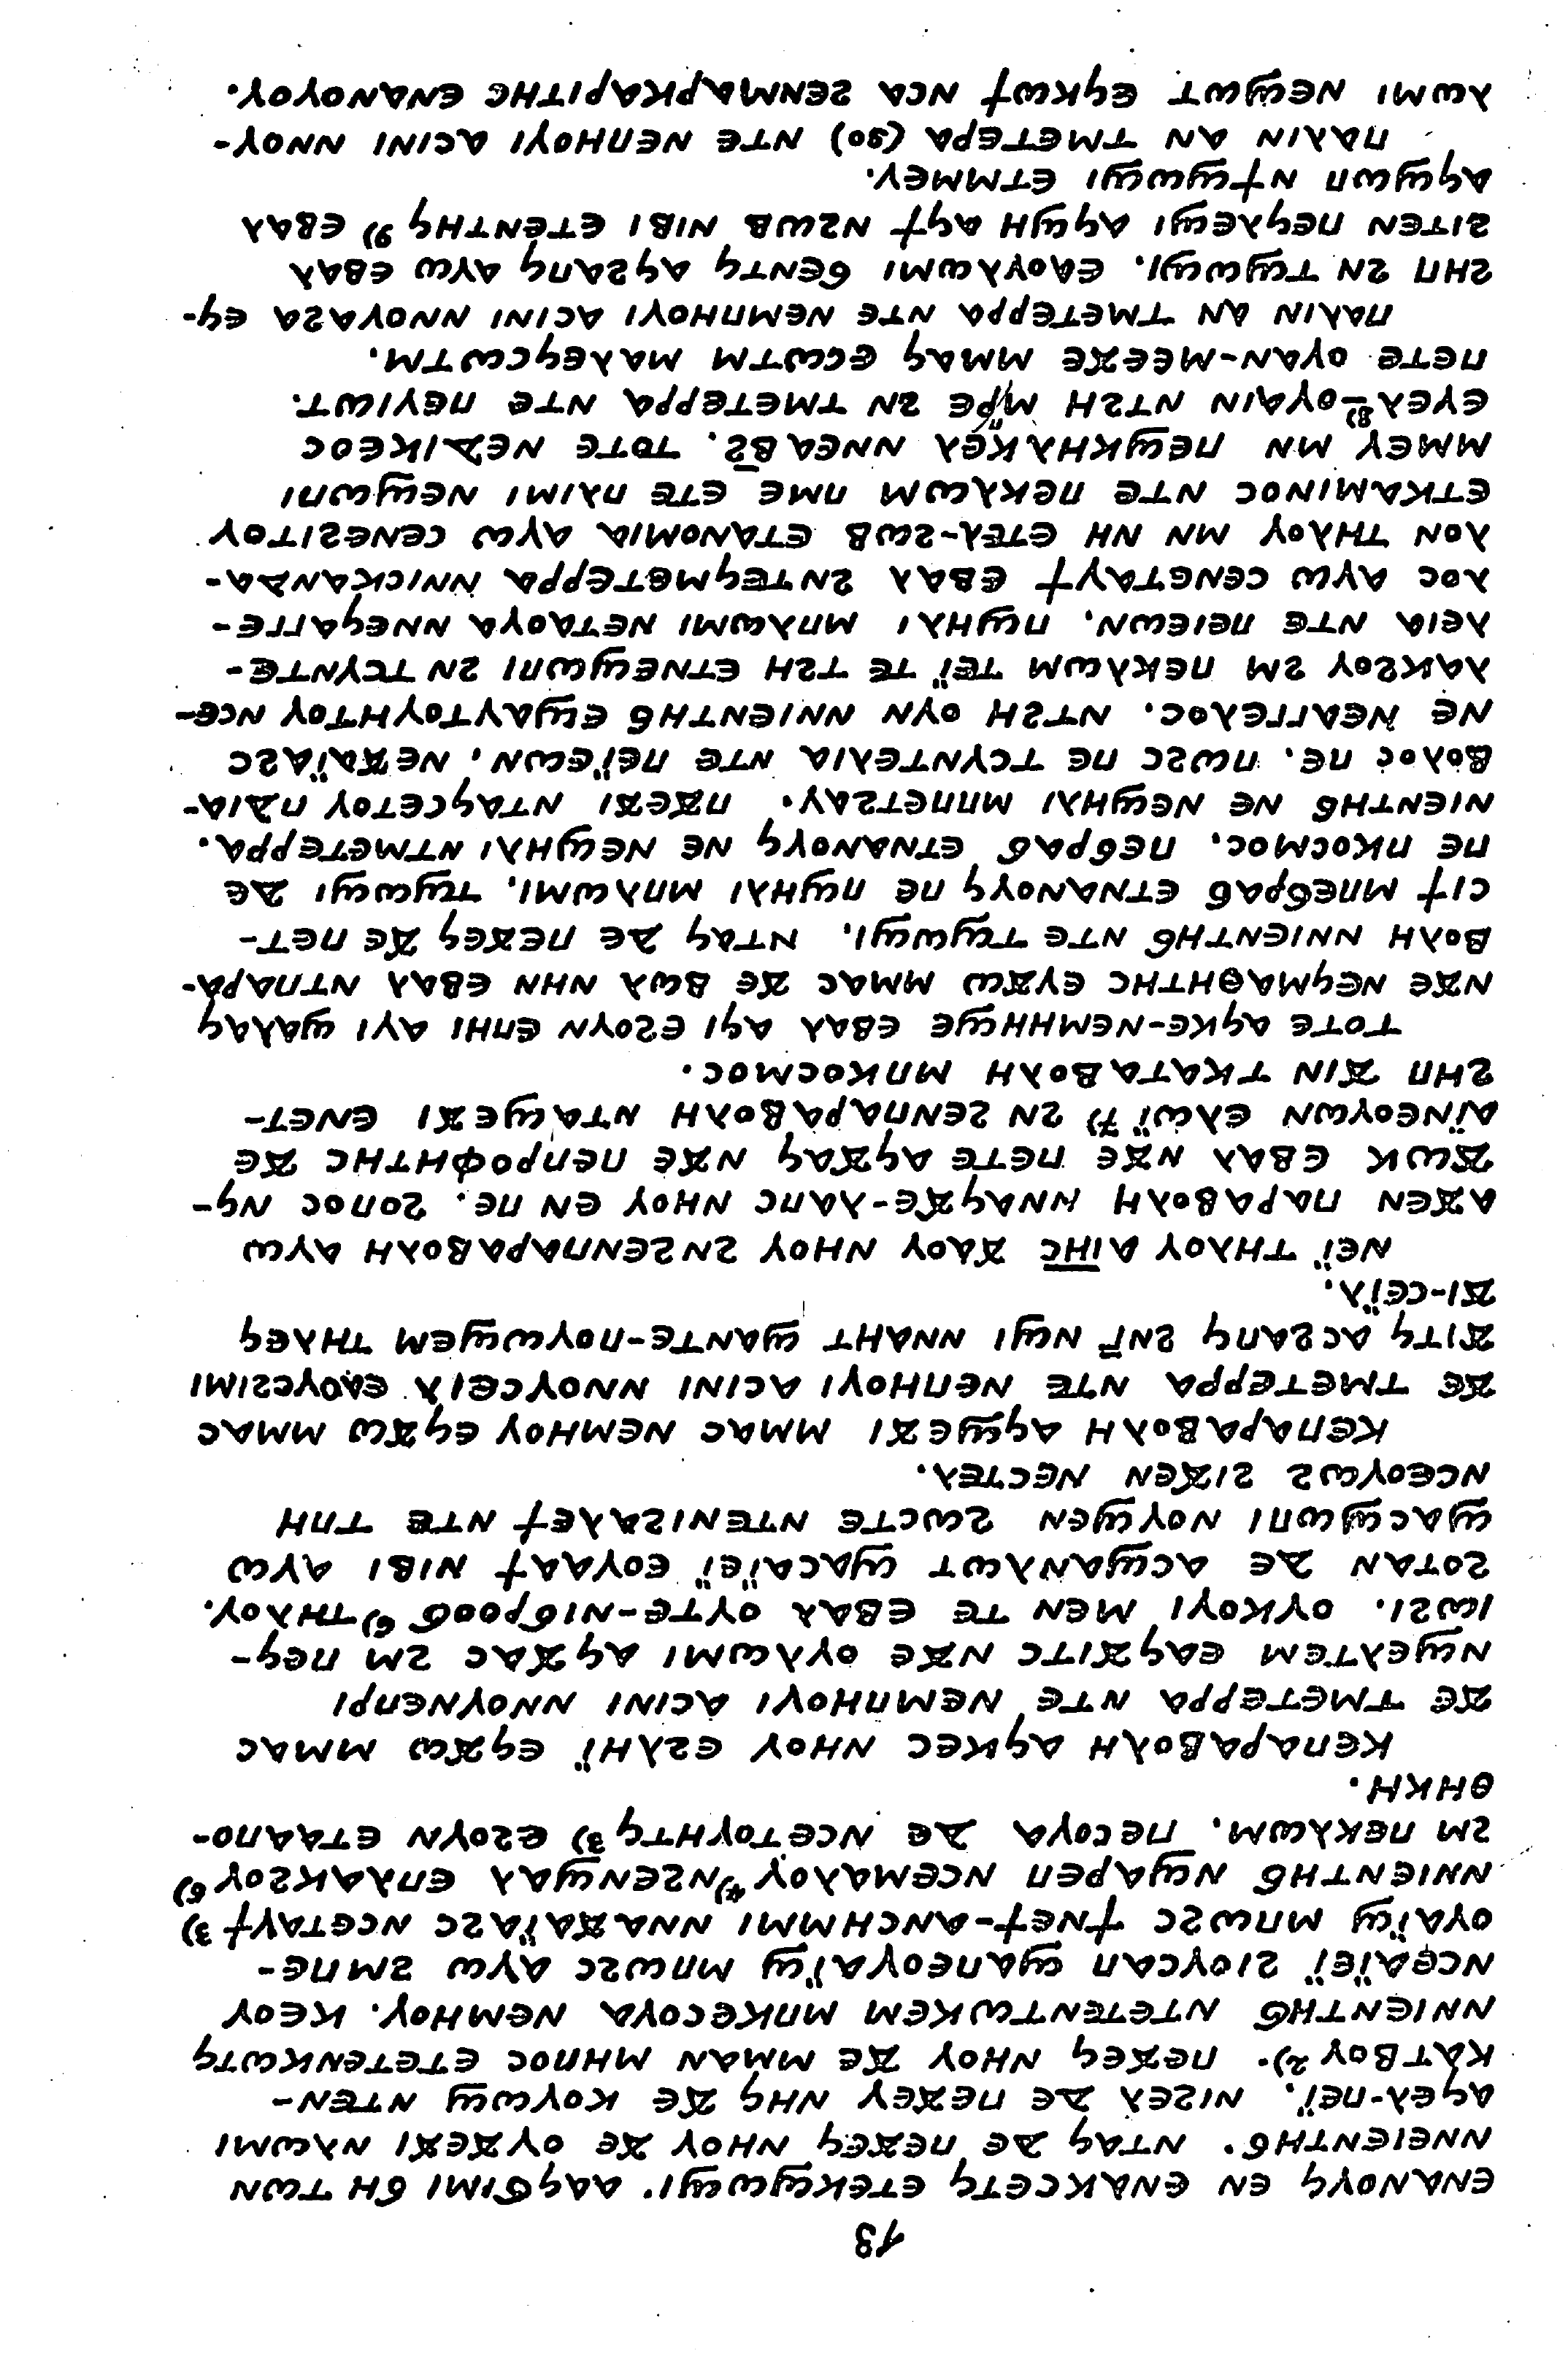 13
ⲉⲛⲁⲛⲟⲩϥ ⲉⲛ ⲉⲛⲁⲕⲥⲉⲧϥ ⲉⲧⲉⲕϣⲱϣⲓ. ⲁⲁϥϭⲓⲙⲓ ϭⲏ ⲧⲱⲛ
ⲛⲛⲉⲓⲉⲛⲧⲏϭ. ⲛⲧⲁϥ ⲇⲉ ⲡⲉϫⲉϥ ⲛⲏⲟⲩ ϫⲉ ⲟⲩϫⲉϫⲓ ⲛⲗⲱⲙⲓ
ⲁϥⲉⲗ-ⲡⲉⲓ̈. ⲛⲓϩⲉⲗ ⲇⲉ ⲡⲉϫⲉⲩ ⲛⲏϥ ϫⲉ ⲕⲟⲩⲱϣ ⲛⲧⲉⲛ-
ⲕⲁⲧⲃⲟⲩ 2). ⲡⲉϫⲉϥ ⲛⲏⲟⲩ ϫⲉ ⲙⲙⲁⲛ ⲙⲏⲡⲟⲥ ⲉⲧⲉⲧⲉⲛⲕⲱⲧϥ
ⲛⲛⲓⲉⲛⲧⲏϭ ⲛⲧⲉⲧⲉⲛⲧⲱⲕⲉⲙ ⲙⲡⲕⲉⲥⲟⲩⲁ ⲛⲉⲙⲏⲟⲩ. ⲕⲉⲟⲩ
ⲛⲥⲉⲁⲓ̈ⲉⲓ̈ ϩⲓⲟⲩⲥⲁⲡ ϣⲁⲡⲉⲟⲩⲁⲓ̈ϣ ⲙⲡⲱϩⲥ ⲁⲩⲱ ϩⲙⲡⲉ-
ⲟⲩⲁⲓ̈ϣ ⲙⲡⲱϩⲥ ϯⲛⲉϯ-ⲁⲛⲥⲏⲙⲙⲓ ⲛⲛⲁϫⲁⲓ̈ⲁϩⲥ ⲛⲥⲉⲧⲁⲩϯ 3)
ⲛⲛⲓⲉⲛⲧⲏϭ ⲛϣⲁⲣⲉⲡ ⲛⲥⲉⲙⲁⲗⲟⲩ 4) ⲛϩⲉⲛϣⲁⲗ ⲉⲡⲗⲁⲕϩⲟⲩ 6)
ϩⲙ ⲡⲉⲕⲗⲱⲙ. ⲡⲉⲥⲟⲩⲁ ⲇⲉ ⲛⲥⲉⲧⲟⲩⲏⲧϥ 3) ⲉϩⲟⲩⲛ ⲉⲧⲁⲁⲡⲟ-
ⲑⲏⲕⲏ.
ⲕⲉⲡⲁⲣⲁⲃⲟⲗⲏ ⲁϥⲕⲉⲥ ⲛⲏⲟⲩ ⲉϩⲗⲏⲓ̈ ⲉϥϫⲱ ⲙⲙⲁⲥ
ϫⲉ ⲧⲙⲉⲧⲉⲣⲣⲁ ⲛⲧⲉ ⲛⲉⲙⲡⲏⲟⲩⲓ ⲁⲥⲓⲛⲓ ⲛⲛⲟⲩⲛⲉⲡⲣⲓ
ⲛϣⲉⲗⲧⲉⲙ ⲉⲁϥϫⲓⲧⲥ ⲛϫⲉ ⲟⲩⲗⲱⲙⲓ ⲁϥϫⲁⲥ ϩⲙ ⲡⲉϥ-
ⲓⲱϩⲓ. ⲟⲩⲕⲟⲩⲓ ⲙⲉⲛ ⲧⲉ ⲉⲃⲁⲗ ⲟⲩⲧⲉ-ⲛⲓϭⲣⲟⲟϭ 6) ⲧⲏⲗⲟⲩ.
ϩⲟⲧⲁⲛ ⲇⲉ ⲁⲥϣⲁⲛⲗⲱⲧ ϣⲁⲥⲁⲓ̈ⲉⲓ̈ ⲉⲟⲩⲁⲁϯ ⲛⲓⲃⲓ ⲁⲩⲱ
ϣⲁⲥϣⲱⲡⲓ ⲛⲟⲩϣⲉⲛ ϩⲱⲥⲧⲉ ⲛⲧⲉⲛⲓϩⲁⲗⲉϯ ⲛⲧⲉ ⲧⲡⲏ
ⲛⲥⲉⲟⲩⲱϩ ϩⲓϫⲉⲛ ⲛⲉⲥⲧⲉⲗ.
ⲕⲉⲡⲁⲣⲁⲃⲟⲗⲏ ⲁϥϣⲉϫⲓ ⲙⲙⲁⲥ ⲛⲉⲙⲏⲟⲩ ⲉϥϫⲱ ⲙⲙⲁⲥ
ϫⲉ ⲧⲙⲉⲧⲉⲣⲣⲁ ⲛⲧⲉ ⲛⲉⲡⲏⲟⲩⲓ ⲁⲥⲓⲛⲓ ⲛⲛⲟⲩⲥⲉⲓⲗ ⲉⲁⲟⲩⲥϩⲓⲙⲓ
ϫⲓⲧϥ ⲁⲥϩⲁⲡϥ ϩⲛⲅ̅ ⲛϣⲓ ⲛⲛⲁⲏⲧ ϣⲁⲛⲧⲉ-ⲡⲟⲩⲱϣⲉⲙ ⲧⲏⲗⲉϥ
ϫⲓ-ⲥⲉⲓ̈ⲗ.
ⲛⲉⲓ̈ ⲧⲏⲗⲟⲩ ⲁⲓ̅ⲏ̅ⲥ̅ ϫⲁⲟⲩ ⲛⲏⲟⲩ ϩⲛϩⲉⲛⲡⲁⲣⲁⲃⲟⲗⲏ ⲁⲩⲱ
ⲁϫⲉⲛ ⲡⲁⲣⲁⲃⲟⲗⲏ ⲛⲛⲁϥϫⲉ-ⲗⲁⲡⲥ ⲛⲏⲟⲩ ⲉⲛ ⲡⲉ. ϩⲟⲡⲟⲥ ⲛϥ-
ϫⲱⲕ ⲉⲃⲁⲗ ⲛϫⲉ ⲡⲉⲧⲉ ⲁϥϫⲁϥ ⲛϫⲉ ⲡⲉⲡⲣⲟⲫⲏⲧⲏⲥ ϫⲉ
ⲁⲓ̈ⲛⲉⲟⲩⲱⲛ ⲉⲗⲱⲓ̈ 7) ϩⲛ ϩⲉⲛⲡⲁⲣⲁⲃⲟⲗⲏ ⲛⲧⲁϣⲉϫⲓ ⲉⲛⲉⲧ-
ϩⲏⲡ ϫⲓⲛ ⲧⲕⲁⲧⲁⲃⲟⲗⲏ ⲙⲡⲕⲟⲥⲙⲟⲥ.
ⲧⲟⲧⲉ ⲁϥⲕⲉ-ⲛⲉⲙⲏⲏϣⲉ ⲉⲃⲁⲗ ⲁϥⲓ ⲉϩⲟⲩⲛ ⲉⲡⲏⲓ ⲁⲩⲓ ϣⲁⲗⲁϥ
ⲛϫⲉ ⲛⲉϥⲙⲁⲑⲏⲧⲏⲥ ⲉⲩϫⲱ ⲙⲙⲁⲥ ϫⲉ ⲃⲱⲗ ⲛⲏⲛ ⲉⲃⲁⲗ ⲛⲧⲡⲁⲣⲁ-
ⲃⲟⲗⲏ ⲛⲛⲓⲉⲛⲧⲏϭ ⲛⲧⲉ ⲧϣⲱϣⲓ. ⲛⲧⲁϥ ⲇⲉ ⲡⲉϫⲉϥ ϫⲉ ⲡⲉⲧ-
ⲥⲓϯ ⲙⲡⲉϭⲣⲁϭ ⲉⲧⲛⲁⲛⲟⲩϥ ⲡⲉ ⲡϣⲏⲗⲓ ⲙⲡⲗⲱⲙⲓ. ⲧϣⲱϣⲓ ⲇⲉ
ⲡⲉ ⲡⲕⲟⲥⲙⲟⲥ. ⲡⲉϭⲣⲁϭ ⲉⲧⲛⲁⲛⲟⲩϥ ⲛⲉ ⲛⲉϣⲏⲗⲓ ⲛⲧⲙⲉⲧⲉⲣⲣⲁ.
ⲛⲓⲉⲛⲧⲏϭ ⲛⲉ ⲛⲉϣⲏⲗⲓ ⲙⲡⲡⲉⲧϩⲁⲩ. ⲡϫⲉϫⲓ ⲛⲧⲁϥⲥⲉⲧⲟⲩ ⲡⲇⲓⲁ-
ⲃⲟⲗⲟⲥ ⲡⲉ. ⲡⲱϩⲥ ⲡⲉ ⲧⲥⲩⲛⲧⲉⲗⲓⲁ ⲛⲧⲉ ⲡⲉⲓ̈ⲉⲱⲛ. ⲛⲉϫⲁⲓ̈ⲁϩⲥ
ⲛⲉ ⲛⲉⲁⲅⲅⲉⲗⲟⲥ. ⲛⲧϩⲏ ⲟⲩⲛ ⲛⲛⲓⲉⲛⲧⲏϭ ⲉϣⲁⲩⲧⲟⲩⲏⲧⲟⲩ ⲛⲥⲉ-
ⲗⲁⲕϩⲟⲩ ϩⲙ ⲡⲉⲕⲗⲱⲙ ⲧⲉⲓ̈ ⲧⲉ ⲧϩⲏ ⲉⲧⲛⲉϣⲱⲡⲓ ϩⲛ ⲧⲥⲩⲛⲧⲉ-
ⲗⲉⲓⲁ ⲛⲧⲉ ⲡⲉⲓⲉⲱⲛ. ⲡϣⲏⲗⲓ ⲙⲡⲗⲱⲙⲓ ⲛⲉⲧⲁⲟⲩⲁ ⲛⲛⲉϥⲁⲅⲅⲉ-
ⲗⲟⲥ ⲁⲩⲱ ⲥⲉⲛⲉⲧⲁⲩϯ ⲉⲃⲁⲗ ϩⲛⲧⲉϥⲙⲉⲧⲉⲣⲣⲁ ⲛⲛⲓⲥⲕⲁⲛⲇⲁ-
ⲗⲟⲛ ⲧⲏⲗⲟⲩ ⲙⲛ ⲛⲏ ⲉⲧⲉⲗ-ϩⲱⲃ ⲉⲧⲁⲛⲟⲙⲓⲁ ⲁⲩⲱ ⲥⲉⲛⲉϩⲓⲧⲟⲩ
ⲉⲧⲕⲁⲙⲓⲛⲟⲥ ⲛⲧⲉ ⲡⲉⲕⲗⲱⲙ ⲡⲙⲉ ⲉⲧⲉ ⲡⲗⲓⲙⲓ ⲛⲉϣⲱⲡⲓ
ⲙⲙⲉⲩ ⲙⲛ ⲡⲉϣⲕⲏⲗⲕⲉⲗ ⲛⲛⲉⲁⲃϩ̅. ⲧⲟⲧⲉ ⲛⲉⲇⲓⲕⲉⲟⲥ
ⲉⲩⲉⲗ 8)-ⲟⲩⲁⲓⲛ ⲛⲧϩⲏ ⲙⲡⲣⲉ ϩⲛ ⲧⲙⲉⲧⲉⲣⲣⲁ ⲛⲧⲉ ⲡⲉⲩⲓⲱⲧ.
ⲡⲉⲧⲉ ⲟⲩⲁⲛ-ⲙⲉⲉϫⲉ ⲙⲙⲁϥ ⲉⲥⲱⲧⲙ ⲙⲁⲗⲉϥⲥⲱⲧⲙ.
ⲡⲁⲗⲓⲛ ⲁⲛ ⲧⲙⲉⲧⲉⲣⲣⲁ ⲛⲧⲉ ⲛⲉⲙⲡⲏⲟⲩⲓ ⲁⲥⲓⲛⲓ ⲛⲛⲟⲩⲁϩⲁ ⲉϥ-
ϩⲏⲡ ϩⲛ ⲧϣⲱϣⲓ. ⲉⲁⲟⲩⲗⲱⲙⲓ ϭⲉⲛⲧϥ ⲁϥϩⲁⲡϥ ⲁⲩⲱ ⲉⲃⲁⲗ
ϩⲓⲧⲉⲛ ⲡⲉϥⲗⲉϣⲓ ⲁϥϣⲏ ⲁϥϯ ⲛϩⲱⲃ ⲛⲓⲃⲓ ⲉⲧⲉⲛⲧⲏϥ 9) ⲉⲃⲁⲗ
ⲁϥϣⲱⲡ ⲛϯϣⲱϣⲓ ⲉⲧⲙⲙⲉⲩ.
ⲡⲁⲗⲓⲛ ⲁⲛ ⲧⲙⲉⲧⲉⲣⲁ (so) ⲛⲧⲉ ⲛⲉⲡⲏⲟⲩⲓ ⲁⲥⲓⲛⲓ ⲛⲛⲟⲩ-
ⲗⲱⲙⲓ ⲛⲉϣⲱⲧ ⲉϥⲕⲱϯ ⲛⲥⲁ ϩⲉⲛⲙⲁⲣⲕⲁⲣⲓⲧⲏⲥ ⲉⲛⲁⲛⲟⲩⲟⲩ.